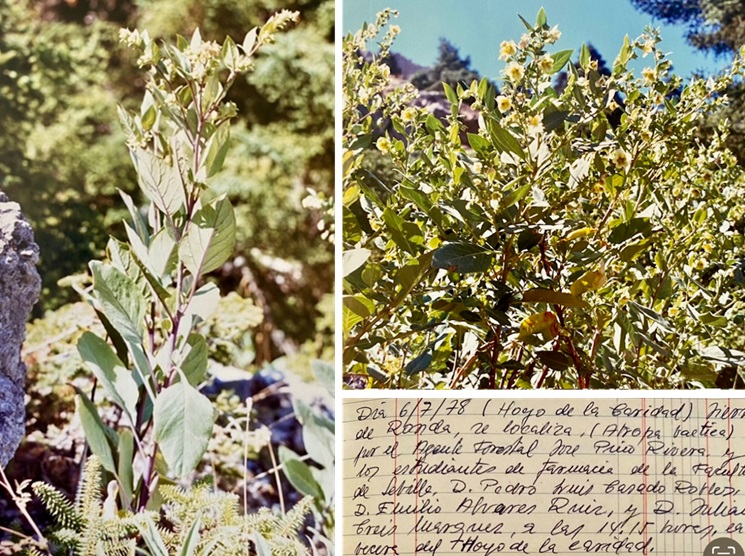 Día 6/7/78 (Hoyo de la Caridad)
de Ronda, se localiza, (Atropa baetica)
por el Agente Forestal José Pino Rivera y
los estudiantes de farmacia de la Facult
de Sevilla, D. Pedro Luis Casado Robles,
D. Emilio Alvarez Ruiz, y D. Julian
Marquez, a las 14,15 horas, en
del Hoyo de la Caridad.